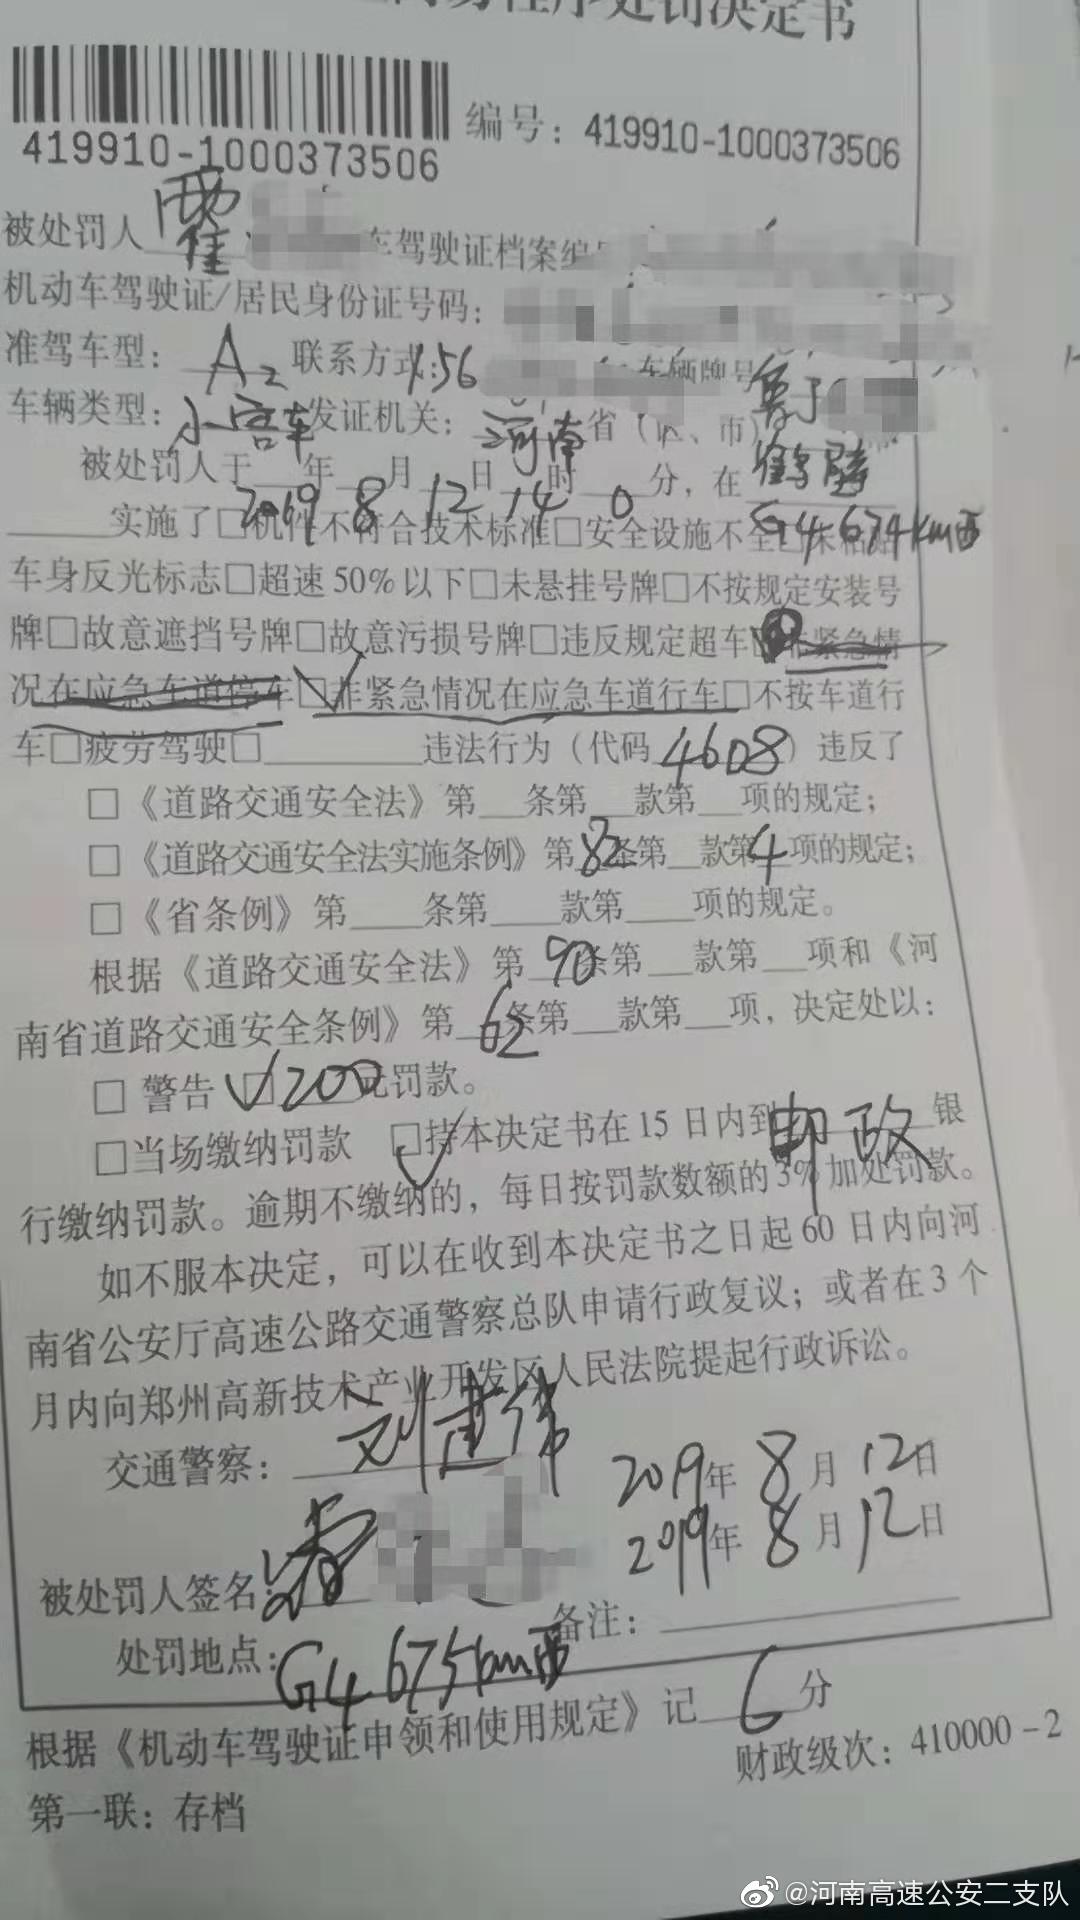 易程序处罚决定书
419910-1000373506
编号：419910-1000373506
被处罚人 车驾驶证档案编
机动车驾驶证/居民身份证号码：
准驾车型： A2 联系方式：156 车辆牌号
车辆类型：小客车 发证机关：河南省（区、市）
被处罚人于2019年8月12日14时0分，在鹤壁
G4 674km西 实施了□机件不符合技术标准□安全设施不全□未粘贴
车身反光标志□超速50%以下□未悬挂号牌□不按规定安装号
牌□故意遮挡号牌□故意污损号牌□违反规定超车 非紧急情
况在应急车道停车☑非紧急情况在应急车道行车□不按车道行
车□疲劳驾驶□ 违法行为（代码4608）违反了
□《道路交通安全法》第__条第__款第__项的规定；
□《道路交通安全法实施条例》第82条第__款第4项的规定；
□《省条例》第__条第__款第__项的规定。
根据《道路交通安全法》第90条第__款第__项和《河
南省道路交通安全条例》第62条第__款第__项，决定处以：
□ 警告 ☑200元罚款。
□当场缴纳罚款 ☑持本决定书在15日内到邮政银
行缴纳罚款。逾期不缴纳的，每日按罚款数额的3%加处罚款。
如不服本决定，可以在收到本决定书之日起60日内向河
南省公安厅高速公路交通警察总队申请行政复议；或者在3个
月内向郑州高新技术产业开发区人民法院提起行政诉讼。
交通警察：刘建伟 2019年8月12日
被处罚人签名： 2019年8月12日
处罚地点：G4 675km西 备注：
根据《机动车驾驶证申领和使用规定》记6分
财政级次：410000-2
第一联：存档
@河南高速公安二支队